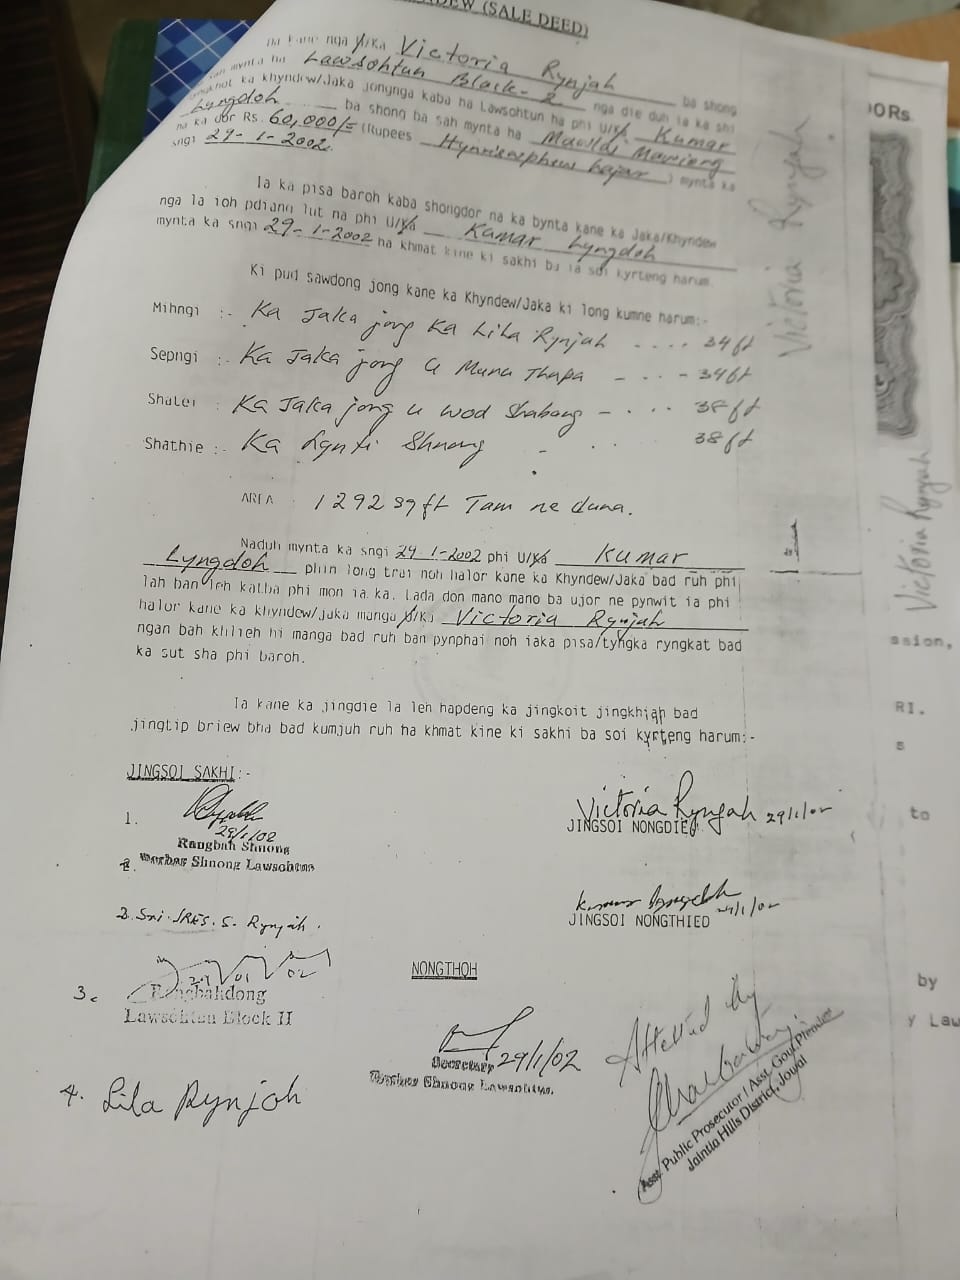 (SALE DEED)
kane nga U/Ka Victoria Rynjah ba shong
mynta ha Lawsohtun Block-2 nga die duh ia ka shi
ka khyndew/Jaka jongnga kaba ha Lawsohtun ha phi U/Ka Kumar
Lyngdoh ba shong ba sah mynta ha Mawlai Mawiong
na ka dor Rs. 60,000/= (Rupees Hynriewphew hajar) mynta ka
sngi 29-1-2002.
Ia ka pisa baroh kaba shongdor na ka bynta kane ka Jaka/Khyndew
nga la ioh pdiang lut na phi U/Ka Kumar Lyngdoh
mynta ka sngi 29-1-2002 ha khmat kine ki sakhi ba la soi kyrteng harum.
Ki pud sawdong jong kane ka Khyndew/Jaka ki long kumne harum:-
Mihngi :- Ka Jaka jong Ka Lila Rynjah .... 34 ft
Sepngi :- Ka Jaka jong u Munu Thapa - ... - 34 ft
Shatei : Ka Jaka jong u Wod Shabong - .... 38 ft
Shathie :- Ka Lynti Shnong - .. 38 ft
AREA 1292 sq ft Tam ne duna.
Naduh mynta ka sngi 29-1-2002 phi U/Ka Kumar
Lyngdoh phin long trai noh halor kane ka Khyndew/Jaka bad ruh phi
lah ban leh katba phi mon ia ka. Lada don mano mano ba ujor ne pynwit ia phi
halor kane ka khyndew/jaka manga U/Ka Victoria Rynjah
ngan bah khlieh hi manga bad ruh ban pynphai noh iaka pisa/tyngka ryngkat bad
ka sut sha phi baroh.
Ia kane ka jingdie la leh hapdeng ka jingkoit jingkhiah bad
jingtip briew bha bad kumjuh ruh ha khmat kine ki sakhi ba soi kyrteng harum:-
JINGSOI SAKHI:-
1.
29/1/02
Rangbah Shnong
Dorbar Shnong Lawsohtun
2.
Victoria Rynjah 29/1/02
JINGSOI NONGDIE
2. Sni. JRES. S. Rynjah.
Kumar Lyngdoh 29/1/02
JINGSOI NONGTHIED
3.
29/01/02
Rangbahdong
Lawsohtun Block II
NONGTHOH
29/1/02
Secretary
Dorbar Shnong Lawsohtun.
4. Lila Rynjah
Attested by
Asst. Public Prosecutor / Asst. Govt. Pleader
Jaintia Hills District, Jowai
Victoria Rynjah
00 Rs.
Victoria Rynjah
ssion,
RI.
s
to
by
y Law